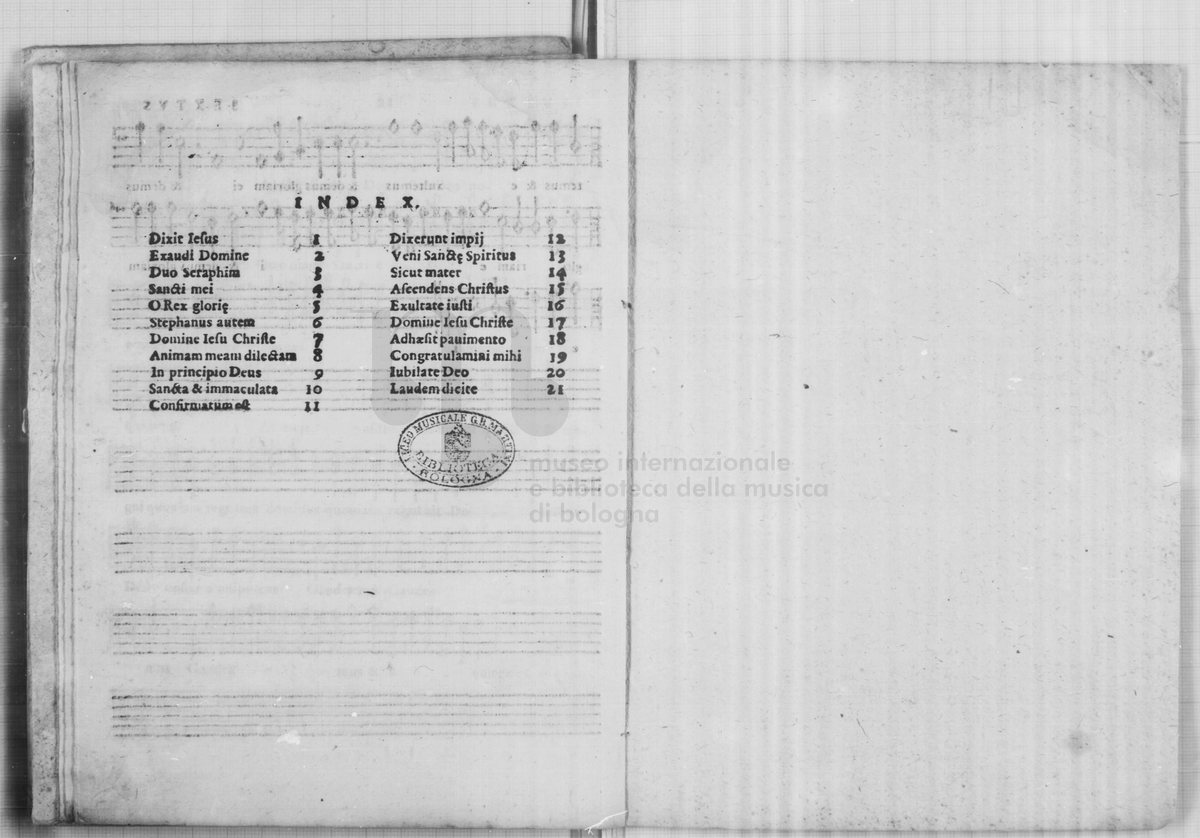 INDEX.
Dixit Iesus 1
Exaudi Domine 2
Duo Seraphim 3
Sancti mei 4
O Rex glorię 5
Stephanus autem 6
Domine Iesu Christe 7
Animam meam dilectam 8
In principio Deus 9
Sancta & immaculata 10
Confirmatum est 11
Dixerunt impij 12
Veni Sanctę Spiritus 13
Sicut mater 14
Ascendens Christus 15
Exultate iusti 16
Domine Iesu Christe 17
Adhæsit pauimento 18
Congratulamini mihi 19
Iubilate Deo 20
Laudem dicite 21
LICEO MUSICALE G.B. MARTINI
BIBLIOTECA
BOLOGNA
museo internazionale
e biblioteca della musica
di bologna